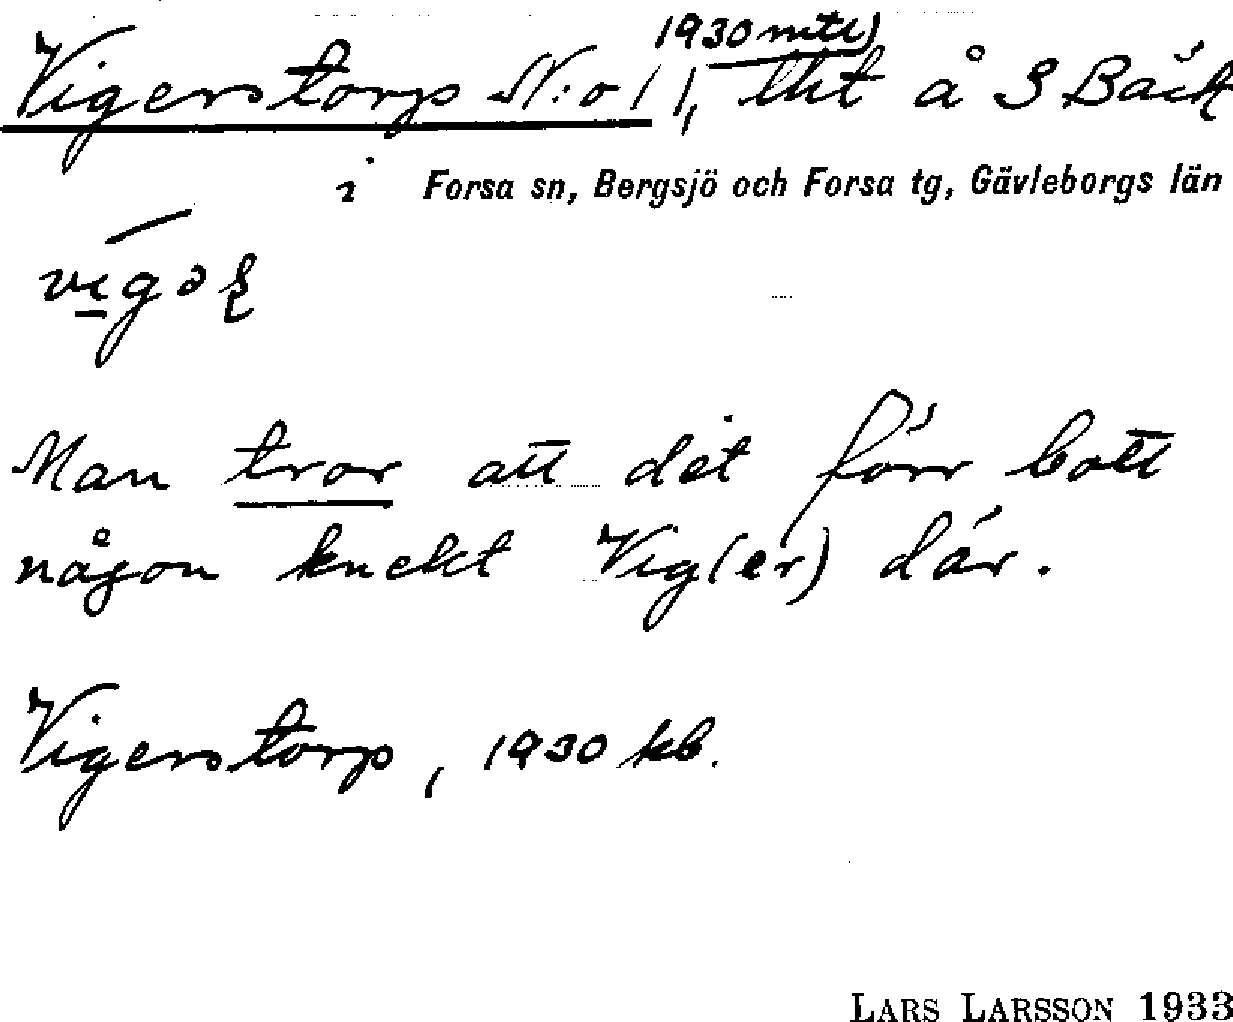 Vigerstorp N:o 1 1930 mtl), lht å S Bäck
i Forsa sn, Bergsjö och Forsa tg, Gävleborgs län
Man tror att det förr bott
någon knekt Vig(er) där.
Vigerstorp, 1930 kb.
LARS LARSSON 1933